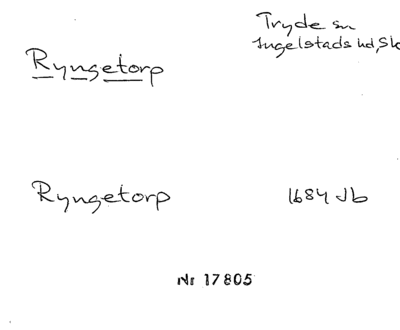 Tryde sn
Ingelstads hd, Sk
Ryngetorp
Ryngetorp
1684 Jb
Nr 17805